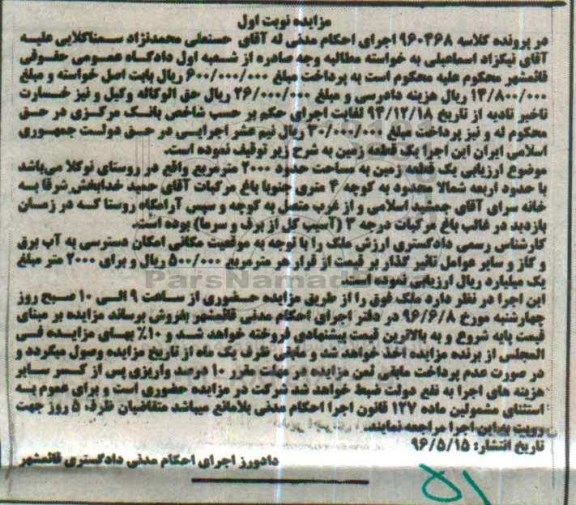 مزایده نوبت اول
در پرونده کلاسه ۹۶۰۴۶۸ اجرای احکام مدنی له آقای حسنعلی محمدنژاد سمناکلایی علیه
آقای نیکزاد اسماعیلی به خواسته مطالبه وجه صادره از شعبه اول دادگاه عمومی حقوقی
قائمشهر محکوم علیه محکوم است به پرداخت مبلغ ۶۰۰/۰۰۰/۰۰۰ ریال بابت اصل خواسته و مبلغ
۱۴/۸۰۰/۰۰۰ ریال هزینه دادرسی و مبلغ ۲۶/۰۰۰/۰۰۰ ریال حق الوکاله وکیل و نیز خسارت
تاخیر تادیه از تاریخ ۹۳/۱۲/۱۸ لغایت اجرای حکم بر حسب شاخص بانک مرکزی در حق
محکوم له و نیز پرداخت مبلغ ۳۰/۰۰۰/۰۰۰ ریال نیم عشر اجرایی در حق دولت جمهوری
اسلامی ایران این اجرا یک قطعه زمین به شرح زیر توقیف نموده است.
موضوع ارزیابی یک قطعه زمین به مساحت حدود ۲۰۰۰ مترمربع واقع در روستای نوکلا می‌باشد
با حدود اربعه شمالا محدود به کوچه ۴ متری جنوبا باغ مرکبات آقای حمید خدابخش شرقا به
خانه سرای آقای جمشید اسلامی و از غرب متصل به کوچه و سپس آرامگاه روستا که در زمان
بازدید در غالب باغ مرکبات درجه ۳ (آسیب کل از برف و سرما) بوده است.
کارشناس رسمی دادگستری ارزش ملک را با توجه به موقعیت مکانی امکان دسترسی به آب برق
و گاز و سایر عوامل تاثیر گذار بر قیمت از قرار هر مترمربع ۵۰۰/۰۰۰ ریال و برای ۲۰۰۰ متر مبلغ
یک میلیارد ریال ارزیابی نموده است.
این اجرا در نظر دارد ملک فوق را از طریق مزایده حضوری از ساعت ۹ الی ۱۰ صبح روز
چهارشنبه مورخ ۹۶/۶/۸ در دفتر اجرای احکام مدنی قائمشهر بفروش برساند مزایده بر مبنای
قیمت پایه شروع و به بالاترین قیمت پیشنهادی فروخته خواهد شد و ۱۰٪ بهای مزایده فی
المجلس از برنده مزایده اخذ خواهد شد و مابقی ظرف یک ماه از تاریخ مزایده وصول میگردد و
در صورت عدم پرداخت مابقی ثمن مزایده در مهلت مقرر ۱۰ درصد واریزی پس از کسر سایر
هزینه های اجرا به نفع دولت ضبط خواهد شد شرکت در مزایده حضوری است و برای عموم به
استثنای مشمولین ماده ۱۲۷ قانون اجرا احکام مدنی بلامانع میباشد متقاضیان ظرف ۵ روز جهت
رویت به این اجرا مراجعه نمایند.
تاریخ انتشار: ۹۶/۵/۱۵
دادورز اجرای احکام مدنی دادگستری قائمشهر
۵۱